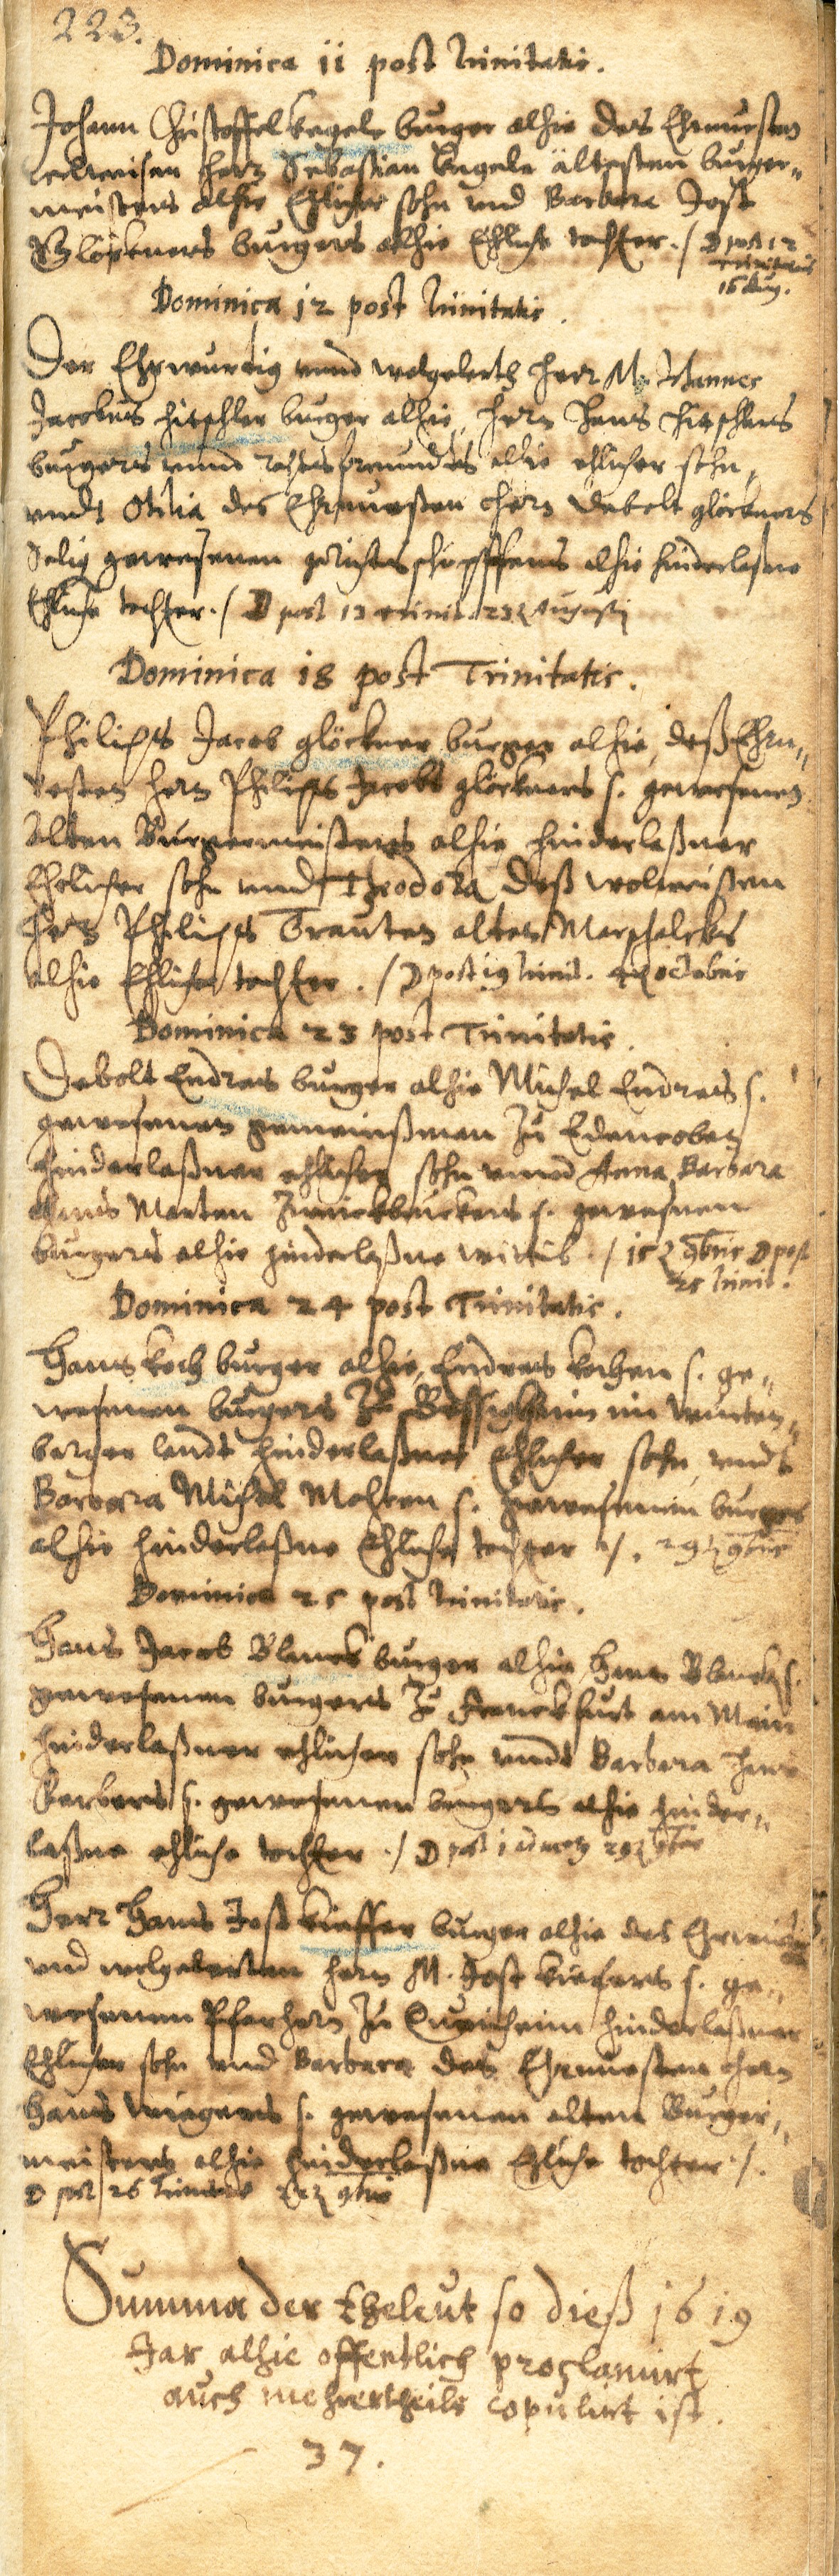 223.
Dominica ii post Trinitatis.
Johann Christoffel Kegele burger alhie des Ehrnvesten
Herrn Sebastian Kegele ältesten burger„
meisters alhie Ehlicher sohn und Barbara Jost
Glöckners burgers alhie Ehliche tochter ./ D post 12
Trinitatis
16 Aug.
Dominica 12 post Trinitatis.
Der Ehrwurdig unnd wolgelerth Herr M.
Jacobus Hitschler burger alhie, Hern Hans Hitschlers
burgers unnd alhie ehlicher sohn,
undt Otilia des Ehrnvesten Hern Debolt glöckners
Selig gewesenen gerichtsschöpffens alhie hinderlaßne
Ehliche tochter ./ D post 13 trinit. 23 Augusti
Dominica 18 post Trinitatis.
Philips Jacob glöckner burger alhie, deß Ehrn„
vesten Hern Philips Jacobs glöckners s. gewesenen
alten Burgermeisters alhie hinderlaßner
Ehelicher sohn und Theodora deß
Hern Philips Trauten alten Marschalcks
alhie Ehliche tochter ./ D post 19 Trinit. 4 octobris
Dominica 23 post Trinitatis.
Debolt Endres burger alhie Michel Endres s.
gewesenen gemeinsman zu Edencoben
hinderlaßner ehlicher sohn unnd Anna Barbara
Hans Marten Zweickbruckers s. gewesnen
burgers alhie hinderlaßne wittib ./ 15 9bris D post
25 Trinit.
Dominica 24 post Trinitatis.
Hans Koch burger alhie, Endres Kochen s. ge„
wesenen burgers zu Bessigheim im Wurten„
berger landt hinderlaßner Ehlicher sohn, undt
Barbara Michel s. gewesenen burgers
alhie hinderlaßne Ehliche tochter ./. 29 9bris
Dominica 25 post Trinitatis.
Hans Jacob Blanck burger alhie, Hans Blancken s.
gewesenen burgers zu Franckfurt am Main
hinderlaßner ehlicher sohn unndt Barbara Hans
Barbers s. gewesenen burgers alhie hinder„
laßne ehliche tochter ./ D post 1 9bris
Herr Hans Jost Kieffer burger alhie des
und wolgelerten Hern M. Jost Kiefers s. ge„
wesenen Pfarhern zu hinderlaßner
Ehlicher sohn und Barbara des Ehrnvesten Hern
Hans s. gewesenen alten Burger„
meisters alhie hinderlaßne Ehliche tochter ./.
D post 26 Trinitatis 9bris
Summa der Eheleut so dieß 1619
Jar alhie offentlich proclamirt
auch mehrertheils copulirt ist.
37.